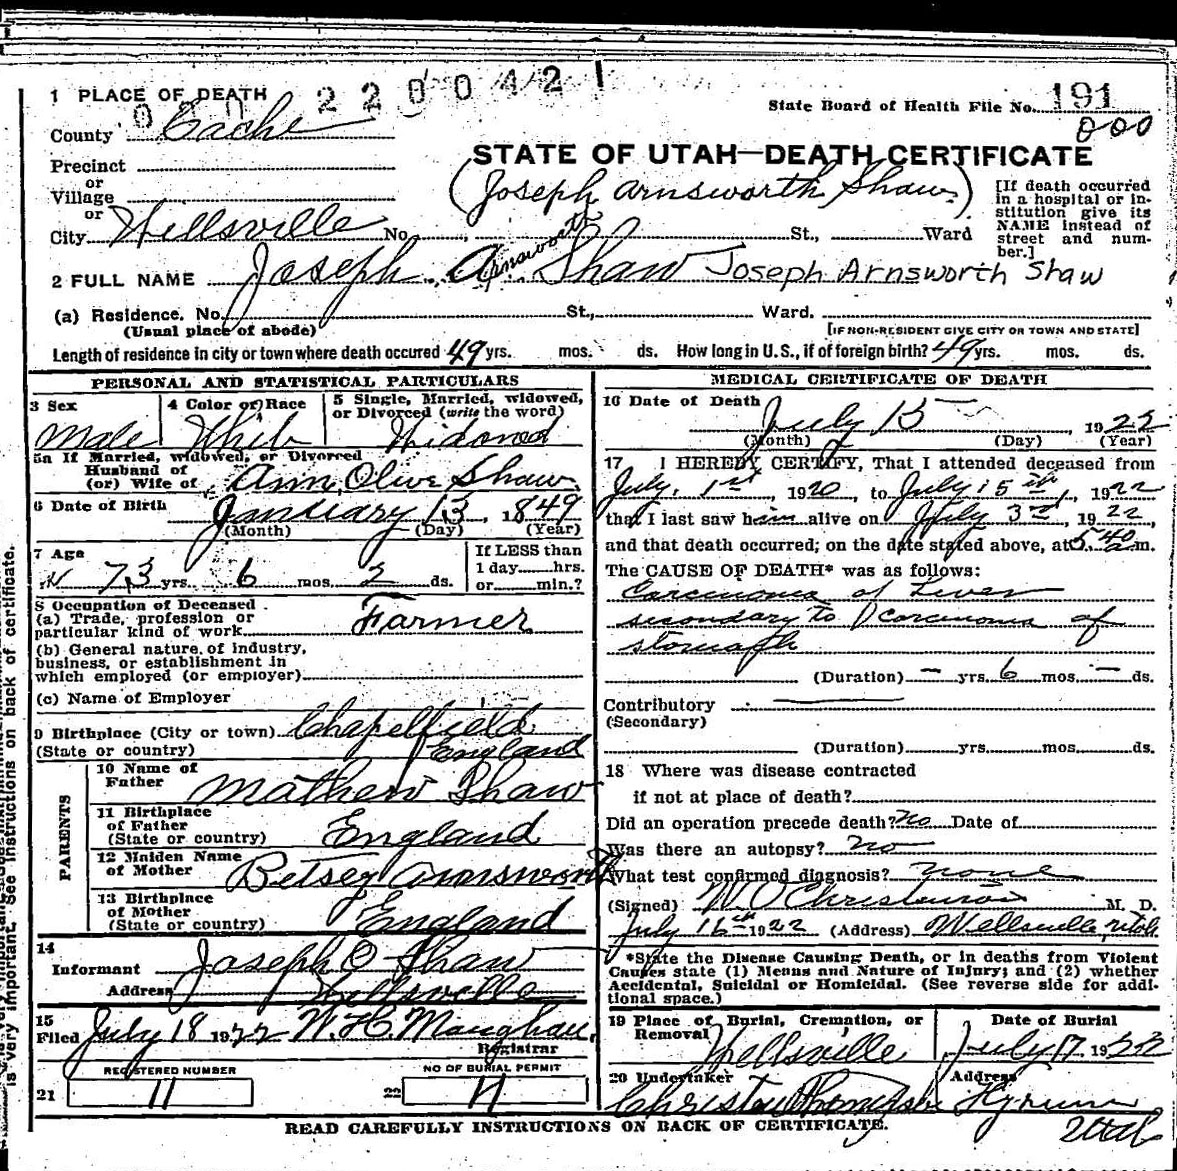 1 PLACE OF DEATH 2200421
State Board of Health File No. 191
County Cache
000
Precinct
STATE OF UTAH—DEATH CERTIFICATE
or
Village
(Joseph Arnsworth Shaw)
[If death occurred in a hospital or institution give its NAME instead of street and number.]
or
City Wellsville No. St., Ward
2 FULL NAME Joseph Arnsworth Shaw Joseph Arnsworth Shaw
(a) Residence. No. St., Ward.
(Usual place of abode) [IF NON-RESIDENT GIVE CITY OR TOWN AND STATE]
Length of residence in city or town where death occured 49 yrs. mos. ds. How long in U. S., if of foreign birth? 49 yrs. mos. ds.
PERSONAL AND STATISTICAL PARTICULARS
3 Sex 4 Color or Race 5 Single, Married, widowed, or Divorced (write the word)
Male White Widowed
5a If Married, widowed, or Divorced
Husband of
(or) Wife of Ann Olive Shaw
6 Date of Birth January 13, 1849
(Month) (Day) (Year)
7 Age If LESS than
73 yrs. 6 mos. 2 ds. 1 day hrs.
or min.?
8 Occupation of Deceased
(a) Trade, profession or
particular kind of work Farmer
(b) General nature of industry,
business, or establishment in
which employed (or employer)
(c) Name of Employer
9 Birthplace (City or town) Chapelfield
(State or country) England
PARENTS
10 Name of
Father Mathew Shaw
11 Birthplace
of Father
(State or country) England
12 Maiden Name
of Mother Betsey Arnsworth
13 Birthplace
of Mother
(State or country) England
14
Informant Joseph O Shaw
Address Wellsville
15
Filed July 18 1922 W. H. Maughan,
Registrar
REGISTERED NUMBER NO OF BURIAL PERMIT
21 11 22 11
MEDICAL CERTIFICATE OF DEATH
16 Date of Death
July 15, 1922
(Month) (Day) (Year)
17 I HEREBY CERTIFY, That I attended deceased from
July, 1st, 1920, to July 15th, 1922
that I last saw him alive on July 3rd, 1922,
and that death occurred; on the date stated above, at 5:40 a.m.
The CAUSE OF DEATH* was as follows:
Carcinoma of Liver
secondary to carcinoma of
stomach
(Duration) — yrs. 6 mos. — ds.
Contributory
(Secondary)
(Duration) yrs. mos. ds.
18 Where was disease contracted
if not at place of death?
Did an operation precede death? no Date of
Was there an autopsy? no
What test confirmed diagnosis? none
(Signed) W. O Christenson M. D.
July 16th 1922 (Address) Wellsville, Utah
*State the Disease Causing Death, or in deaths from Violent
Causes state (1) Means and Nature of Injury; and (2) whether
Accidental, Suicidal or Homicidal. (See reverse side for addi-
tional space.)
19 Place of Burial, Cremation, or Date of Burial
Removal Wellsville July 17 1922
20 Undertaker Address
Hyrum
Utah
READ CAREFULLY INSTRUCTIONS ON BACK OF CERTIFICATE.
is very important. See instructions on back of certificate.